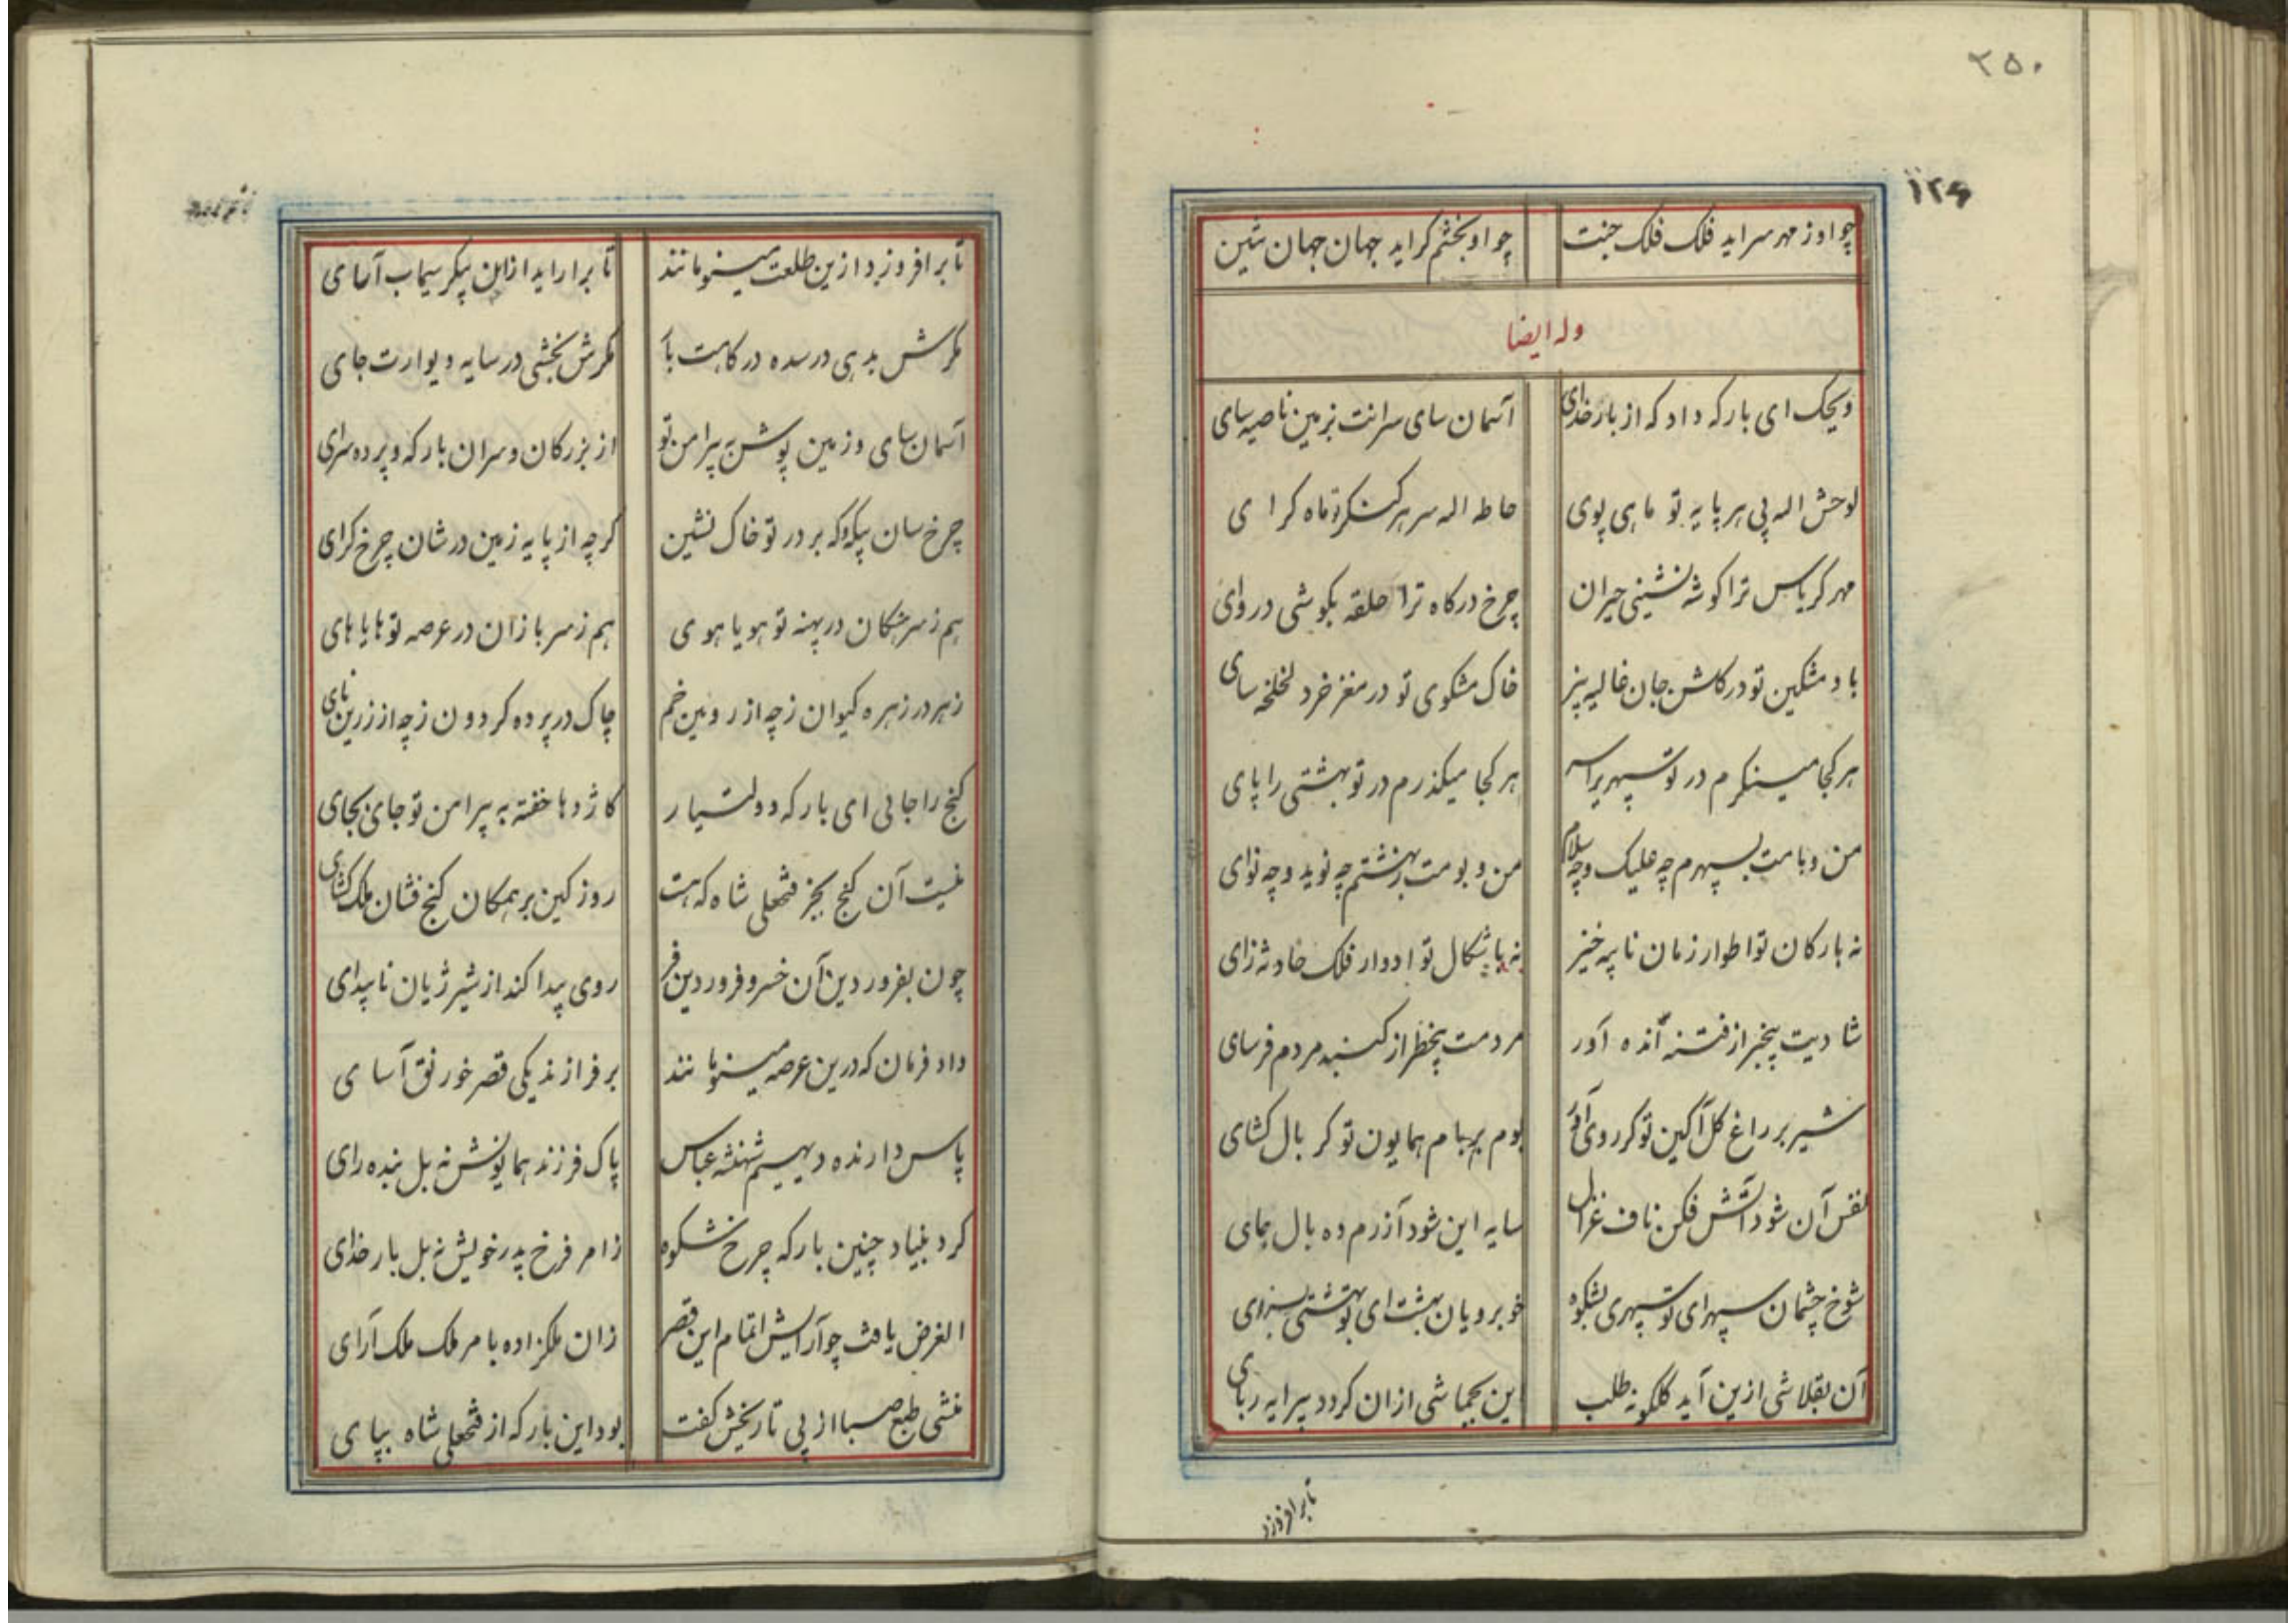 ۲۵۰
۱۲۶
چو او ز مهر سراید فلک فلک جنت
چو او بخشم گراید جهان جهان تنین
وله ایضا
ویحک ای بارکه داد که از بار خدای
آسمان سای سرانت بزمین ناصیه سای
لوحش اله پی هر پایه تو ماهی پوی
حاطه اله سر هر کنکره ماه کرای
مهر کریاس ترا کوشه نشینی حیران
چرخ درکاه ترا حلقه بکوشی دروای
باد مشکین تو در کاش جان غالیه بیز
خاک مشکوی تو در مغز خرد لخلخه سای
هر کجا مینکرم در تو سپهریرا سر
هر کجا میکذرم در تو بهشتی را پای
من و بامت بسپهرم چه علیک و چه سلام
من و بومت ببهشتم چه نوید و چه نوای
نه بارکان تو اطوار زمان نایبه خیز
نه باشکال تو ادوار فلک حادثه زای
شادیت بیخبر از فتنه انده آور
مردمت بیخطر از کنبد مردم فرسای
شیر بر راغ کل آکین تو کر روی آور
بوم بر بام همایون تو کر بال کشای
نفس آن شود آتش فکن ناف غزال
سایه این شود آزرم ده بال همای
شوخ چشمان سپهر ای تو سپهری بشکوه
خوبرویان بهشت ای تو بهشتی بسزای
آن بقلاشی ازین آید کلکونه طلب
این بجماشی از ان کردد پیرایه ربای
تا برافروزد
تا برافروزد ازین طلعت مینو مانند
تا براراید ازاین پیکر سیماب آمای
مکرش بدهی در سده درکاهت بار
مکرش بخشی در سایه دیوارت جای
آسمان سای و زمین پوش به پیرامن تو
از بزرکان و سران بارکه و پرده سرای
چرخ سان پیکر که بر در تو خاک نشین
کرچه از پایه زمین در شان چرخ کرای
هم ز سرهنکان در پهنه تو هویا هوی
هم ز سربازان در عرصه تو هایا های
زهر در زهره کیوان ز چه از روئین خم
چاک در پرده کردون ز چه از زرین نای
کنج را جائی ای بارکه دولتیار
کاژدها خفته به پیرامن تو جای بجای
نیست آن کنج بجز فتحعلی شاه که هست
روز کین بر همکان کنج فشان ملک کشای
چون بفروردین آن خسرو فروردین فر
روی پیدا کند از شیر ژیان ناپیدای
داد فرمان که درین عرصه مینو مانند
برفرازند یکی قصر خورنق آسای
پاس دارنده دیهیم شهنشه عباس
پاک فرزند همایونش نه بل بنده رای
کرد بنیاد چنین بارکه چرخ شکوه
ز امر فرخ پدر خویش نه بل بار خدای
الغرض یافت چو آرایش اتمام این قصر
زان ملکزاده با مر ملک ملک آرای
منشی طبع صبا از پی تاریخش کفت
بود این بارکه از فتحعلی شاه بپای